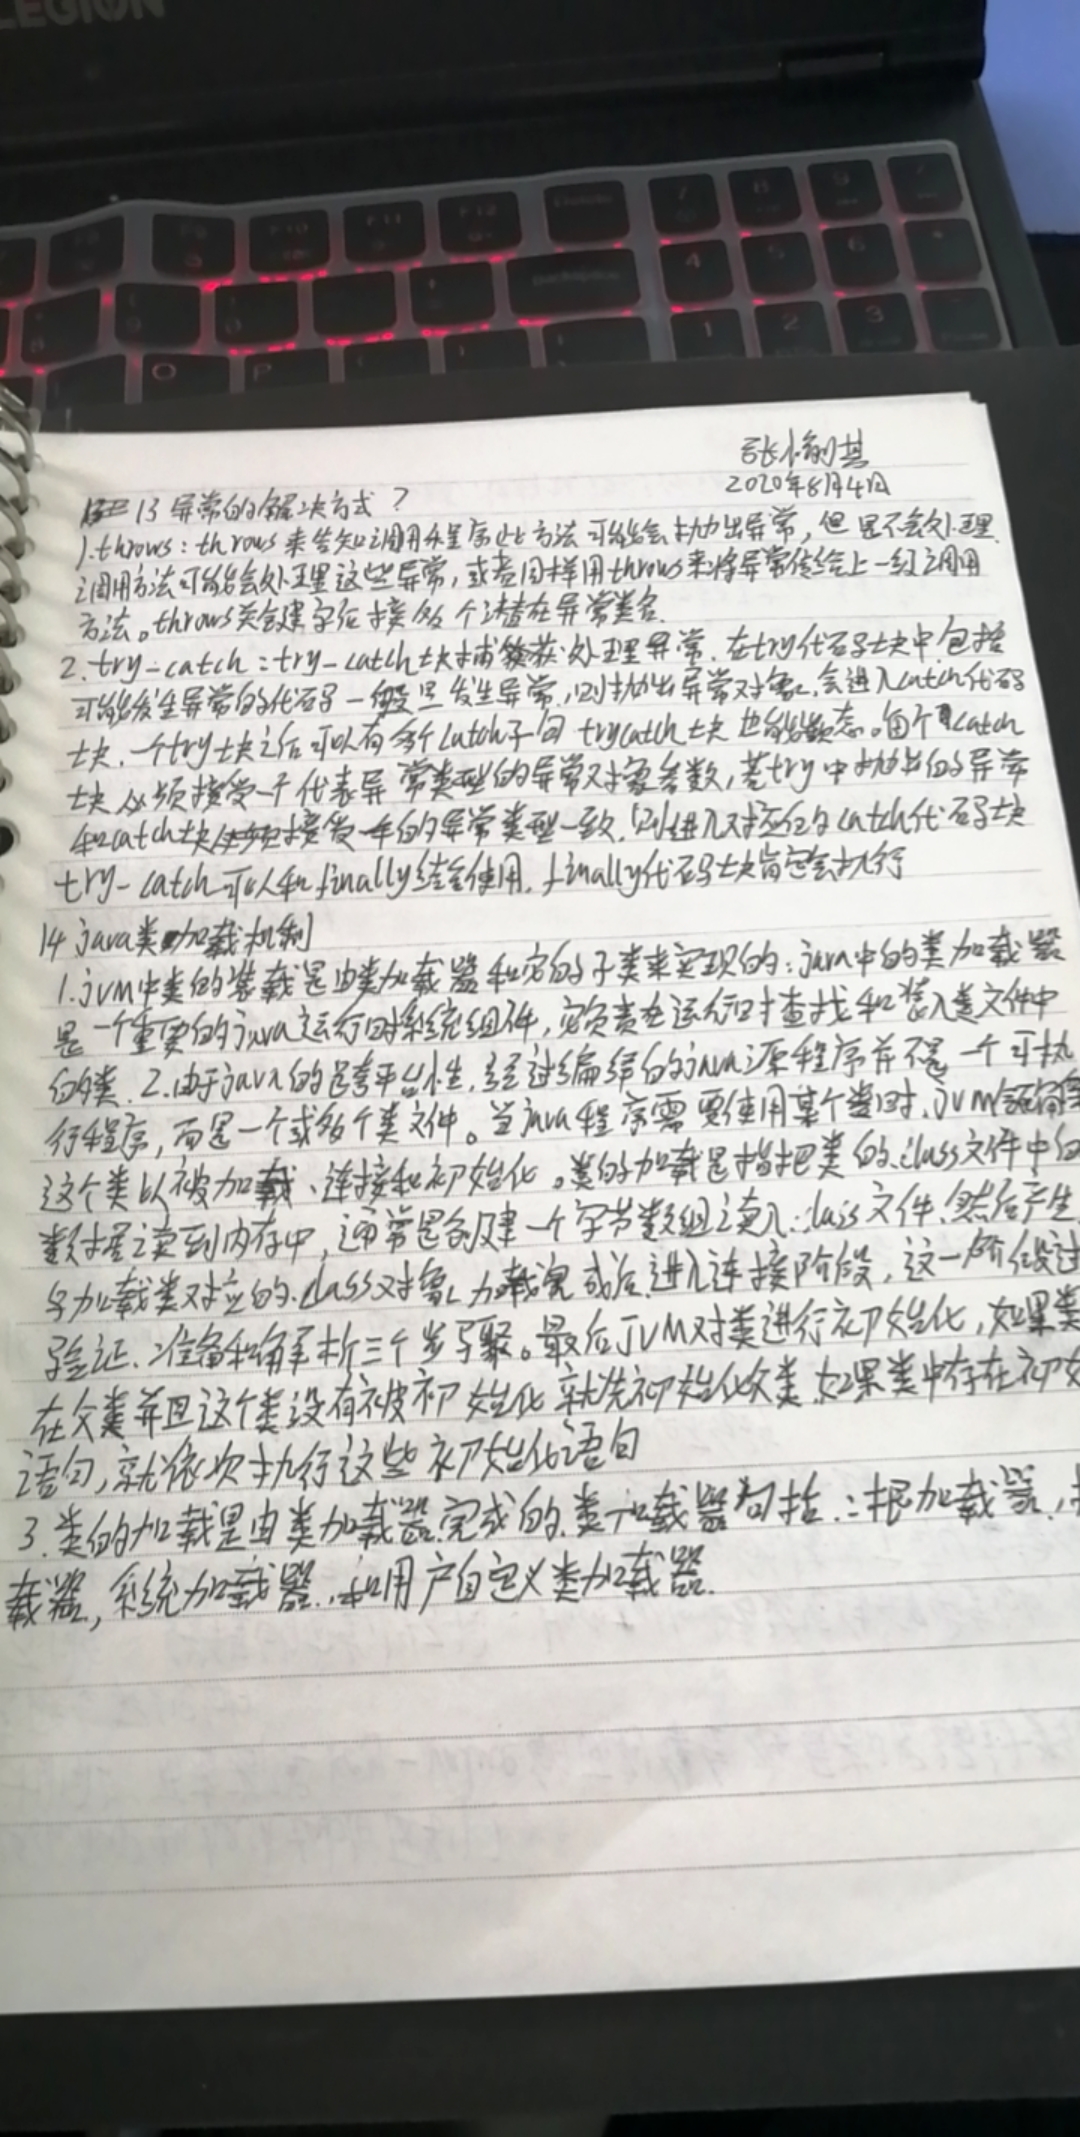 LEGION
F10 F11 F12 7 8 9
backspace 4 5 6
1 2 3
O P
2020年8月4日
13 异常的解决方式?
1.throws:throws来告知调用程序此方法可能会抛出异常,但是不会处理.
调用方法可能会处理这些异常,或者同样用throws来将异常传给上一级调用
方法。throws关键字后接多个潜在异常类名.
2.try-catch:try-catch块捕获处理异常.在try代码块中包括
可能发生异常的代码一但发生异常,则抛出异常对象,会进入catch代码
块.一个try块之后可以有多个catch子句 trycatch块也能嵌套。每个catch
块必须接受一个代表异常类型的异常对象参数,若try中抛出的异常
和catch块的异常类型一致,则进入对应的catch代码块
try-catch可以和finally结合使用.finally代码块肯定会执行
14 java类加载机制
1.JVM中类的装载是由类加载器和它的子类来实现的:java中的类加载器
是一个重要的java运行时系统组件,它负责在运行时查找和装入类文件中
的类.2.由于java的跨平台性.经过编译的java源程序并不是一个可执
行程序,而是一个或多个类文件。当java程序需要使用某个类时.JVM
这个类以被加载、连接和初始化。类的加载是指把类的.class文件中的
数据读到内存中,通常是创建一个字节数组读入.class文件.然后产生
与加载类对应的.class对象.加载完成后.进入连接阶段,这一阶段
验证.准备和解析三个步骤。最后JVM对类进行初始化,如果类
在父类并且这个类没有被初始化.就先初始化父类.如果类中存在初始
语句,就依次执行这些初始化语句
3.类的加载是由类加载器完成的.类加载器包括:根加载器.
载器,系统加载器.和用户自定义类加载器.